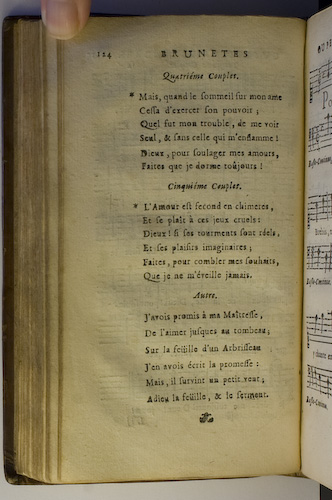 124 BRUNETES
Quatriéme Couplet.
* Mais, quand le sommeil sur mon ame
Cessa d'exercer son pouvoir ;
Quel fut mon trouble, de me voir
Seul, & sans celle qui m'enflamme !
Dieux, pour soulager mes amours,
Faites que je dorme toûjours !
Cinquiéme Couplet.
* L'Amour est second en chimeres,
Et se plaît à ces jeux cruels :
Dieux ! si ses tourments sont réels,
Et ses plaisirs imaginaires ;
Faites, pour combler mes souhaits,
Que je ne m'éveille jamais.
Autre.
J'avois promis à ma Maîtresse,
De l'aimer jusques au tombeau ;
Sur la feüille d'un Arbrisseau
J'en avois écrit la promesse :
Mais, il survint un petit vent ;
Adieu la feüille, & le serment.
Basse-Continue
Basse-Continue
Basse-Continue